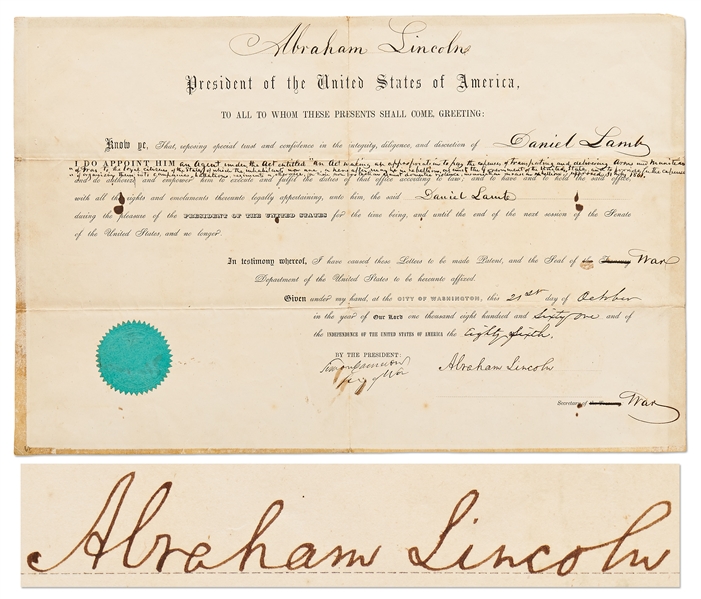 Abraham Lincoln
President of the United States of America,
TO ALL TO WHOM THESE PRESENTS SHALL COME, GREETING:
Know ye, That, reposing special trust and confidence in the integrity, diligence, and discretion of Daniel Lamb
I DO APPOINT HIM an Agent under the Act entitled "An Act making an appropriation to pay the expenses of transporting and delivering Arms and Munitions
of War to the loyal citizens of the States of which the inhabitants now are, or hereafter may be in rebellion against the Government of the United States, and to provide for the expenses
of organizing them into companies, battalions, regiments approved 31 July 1861
and do authorize and empower him to execute and fulfil the duties of that office according to law; and to have and to hold the said office,
with all the rights and emoluments thereunto legally appertaining, unto him, the said Daniel Lamb
during the pleasure of the PRESIDENT OF THE UNITED STATES for the time being, and until the end of the next session of the Senate
of the United States, and no longer.
In testimony whereof, I have caused these Letters to be made Patent, and the Seal of the Treasury War
Department of the United States to be hereunto affixed.
Given under my hand, at the CITY OF WASHINGTON, this 21st day of October
in the year of Our Lord one thousand eight hundred and Sixty one and of
the INDEPENDENCE OF THE UNITED STATES OF AMERICA the Eighty Sixth.
BY THE PRESIDENT:
Simon Cameron Abraham Lincoln
Secy of War
Secretary of the Treasury War
Abraham Lincoln